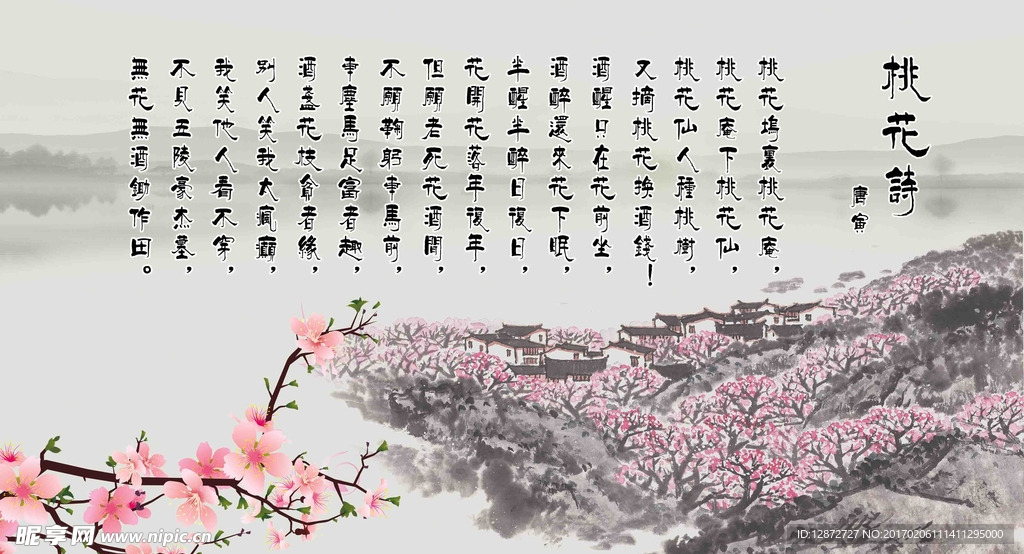 桃花詩
唐寅
桃花塢裏桃花庵，
桃花庵下桃花仙，
桃花仙人種桃樹，
又摘桃花換酒錢！
酒醒只在花前坐，
酒醉還來花下眠，
半醒半醉日復日，
花開花落年復年，
但願老死花酒間，
不願鞠躬車馬前，
車塵馬足富者趣，
酒盞花枝貧者緣，
別人笑我太瘋癲，
我笑他人看不穿，
不見五陵豪杰墓，
無花無酒鋤作田。
昵享网 www.nipic.cn
ID:12872727 NO:20170206111411295000